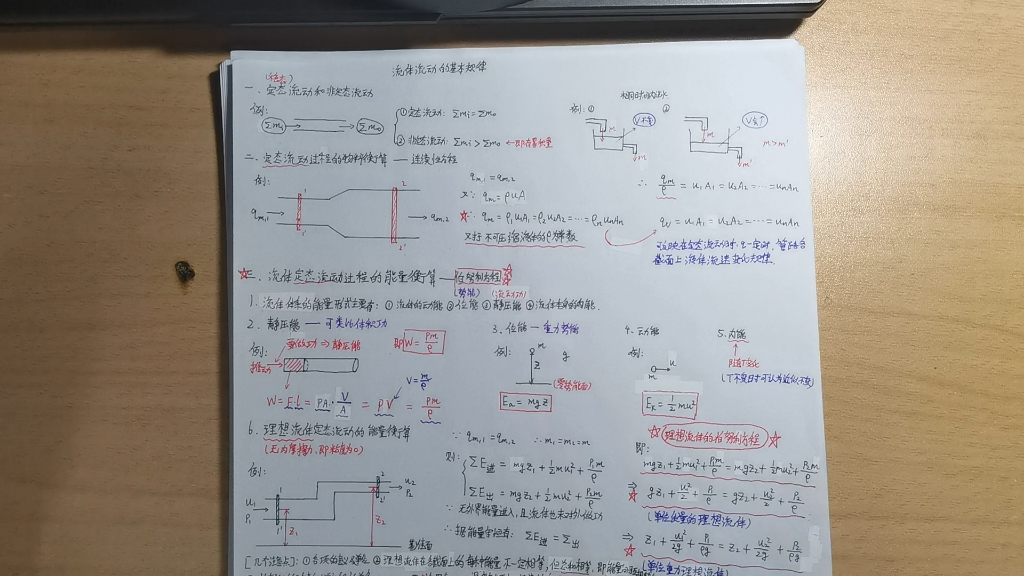 流体流动的基本规律
(稳态)
一、定态流动和非定态流动
例:
Σmi Σmo
① 定态流动: Σmi=Σmo
② 非定态流动: Σmi>Σmo ←即存在累积量
例: ①
②
V不变
V变↑
m m
m m'
m>m'
二、定态流动过程的物料衡算——连续性方程
例:
qm,1 qm,2
1 2
1' 2'
qm,1=qm,2
又∵ qm=ρuA
☆∴ qm=ρ1u1A1=ρ2u2A2=⋯=ρnunAn
又对不可压缩流体的ρ为常数
∴ qm/ρ=u1A1=u2A2=⋯=unAn
qv=u1A1=u2A2=⋯=unAn
截面上流体流速变化规律.
☆三、流体定态流动过程的能量衡算——伯努利方程☆
1. 流体体系的能量形式主要有: ① 流体的动能 ② 位能 ③ 静压能 ④ 流体本身的内能.
2. 静压能——可类比体积功
例:
即W=pm/ρ
V=m/ρ
W=F·L=pA·V/A=pV=pm/ρ
3. 位能—重力势能
例:
m
g
z
(零势能面)
Ep=mgz
4. 动能
例:
m u
Ek=½mu²
5. 内能
(T不变时可认为近似不变)
6. 理想流体定态流动的能量衡算
(无内摩擦力,即粘度为0)
例:
u1 p1 z1
u2 p2 z2
∵ qm,1=qm,2 ∴ m1=m2=m
则: ΣE进=mgz1+½mu²+p1m/ρ
ΣE出=mgz2+½mu²+p2m/ρ
∵ 无外界能量进入,且流体也未对外做功
∴ 据能量守恒有: ΣE进=ΣE出
☆理想流体的伯努利方程☆
即:
mgz1+½mu²+p1m/ρ=mgz2+½mu²+p2m/ρ
⇒ gz1+u1²/2+p1/ρ=gz2+u2²/2+p2/ρ
☆ (单位质量的理想流体)
⇒ z1+u1²/2g+p1/ρg=z2+u2²/2g+p2/ρg
☆ (单位重力理想流体)